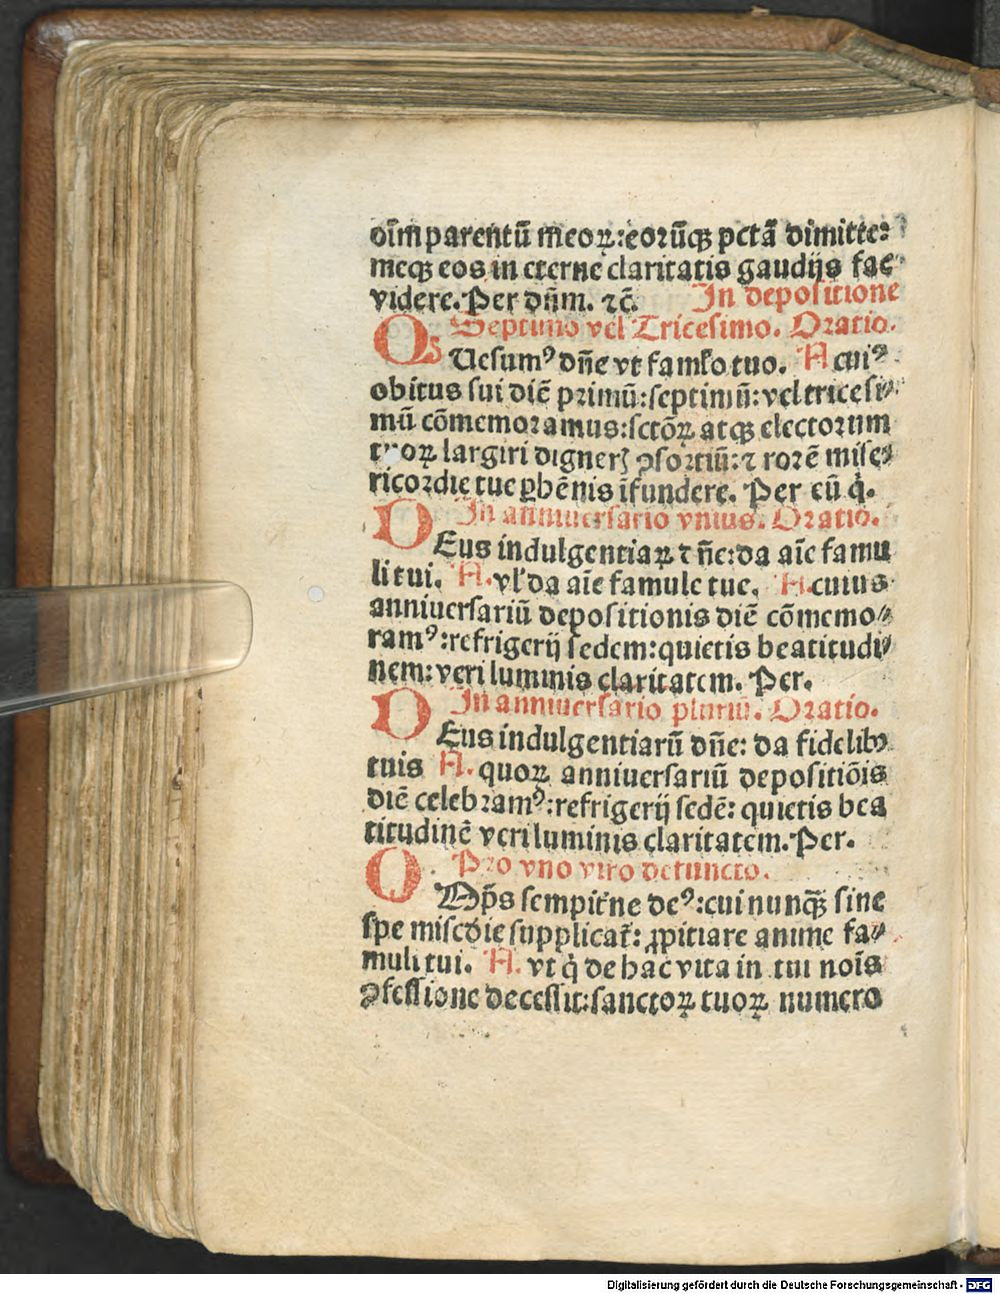 oīm parentū meoꝝ: eorūqꝫ pctā dimitte:
meqꝫ eos in eterne claritatis gaudijs fac
videre. Per dn̄m. ⁊c̄. In depositione
Septimo vel Tricesimo. Oratio.
QS Uesumꝰ dn̄e vt famło tuo. A cuiꝰ
obitus sui diē primū: septimū: vel tricesi⸗
mū cōmemoramus: sctōꝝ atqꝫ electorum
tuoꝝ largiri digneꝝ ꝯsortiū: ⁊ rorē mise⸗
ricordie tue ꝑhēnis īfundere. Per eū q̇.
In anniuersario vnius. Oratio.
DEus indulgentiaꝝ dn̄e: da aīe famu
li tui. A. vł da aīe famule tue. A. cuius
anniuersariū depositionis diē cōmemo⸗
ramꝰ: refrigerij sedem: quietis beatitudi⸗
nem: veri luminis claritatem. Per.
In anniuersario pluriū. Oratio.
DEus indulgentiarū dn̄e: da fidelibꝫ
tuis A. quoꝝ anniuersariū depositiōis
diē celebramꝰ: refrigerij sedē: quietis bea
titudinē veri luminis claritatem. Per.
Pro vno viro defuncto.
OMp̄s sempit̄ne deꝰ: cui nunqꝫ̄ sine
spe miscd̄ie supplicat̄: ꝓpitiare anime fa⸗
muli tui. A. vt q̇ de hac vita in tui noīs
ꝯfessione decessit: sanctoꝝ tuoꝝ numero
Digitalisierung gefördert durch die Deutsche Forschungsgemeinschaft - DFG